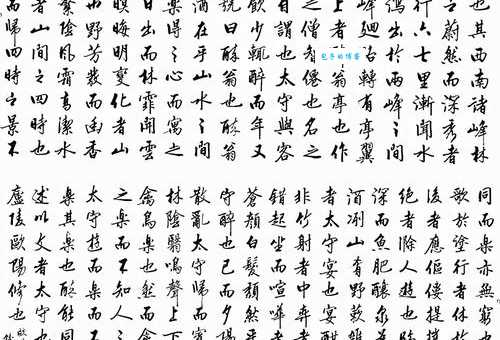 也其西南諸峰林
之蔚然而深秀者
行六七里漸聞水
瀉出於兩峰之間
峰回路轉有亭翼
上者翁亭也作
之僧僊也名之
自謂也太守與客
飲少輒醉而年又
號曰醉翁也醉翁
酒在乎山水之間
樂得之心而寓之
日出而林霏開雲
暝晦明變化者山
也野芳發而幽香
繁陰風霜高潔水
者山間之四時也
而歸四時之景不
同而樂亦無窮
歌於塗行者休
後者應傴僂提
絕者滁人遊也臨
深而魚肥釀泉
酒洌山肴野蔌雜
者太守宴也宴
非竹射者中弈
錯起坐而諠嘩者
蒼顏白髮頹然乎
守醉也已而夕陽
散亂太守歸而賓
林陰翳鳴聲上下
禽鳥樂也然而
之樂而不知人之
太守遊而樂而不
樂其樂也醉能同
述以文者太守也
廬陵歐陽修也